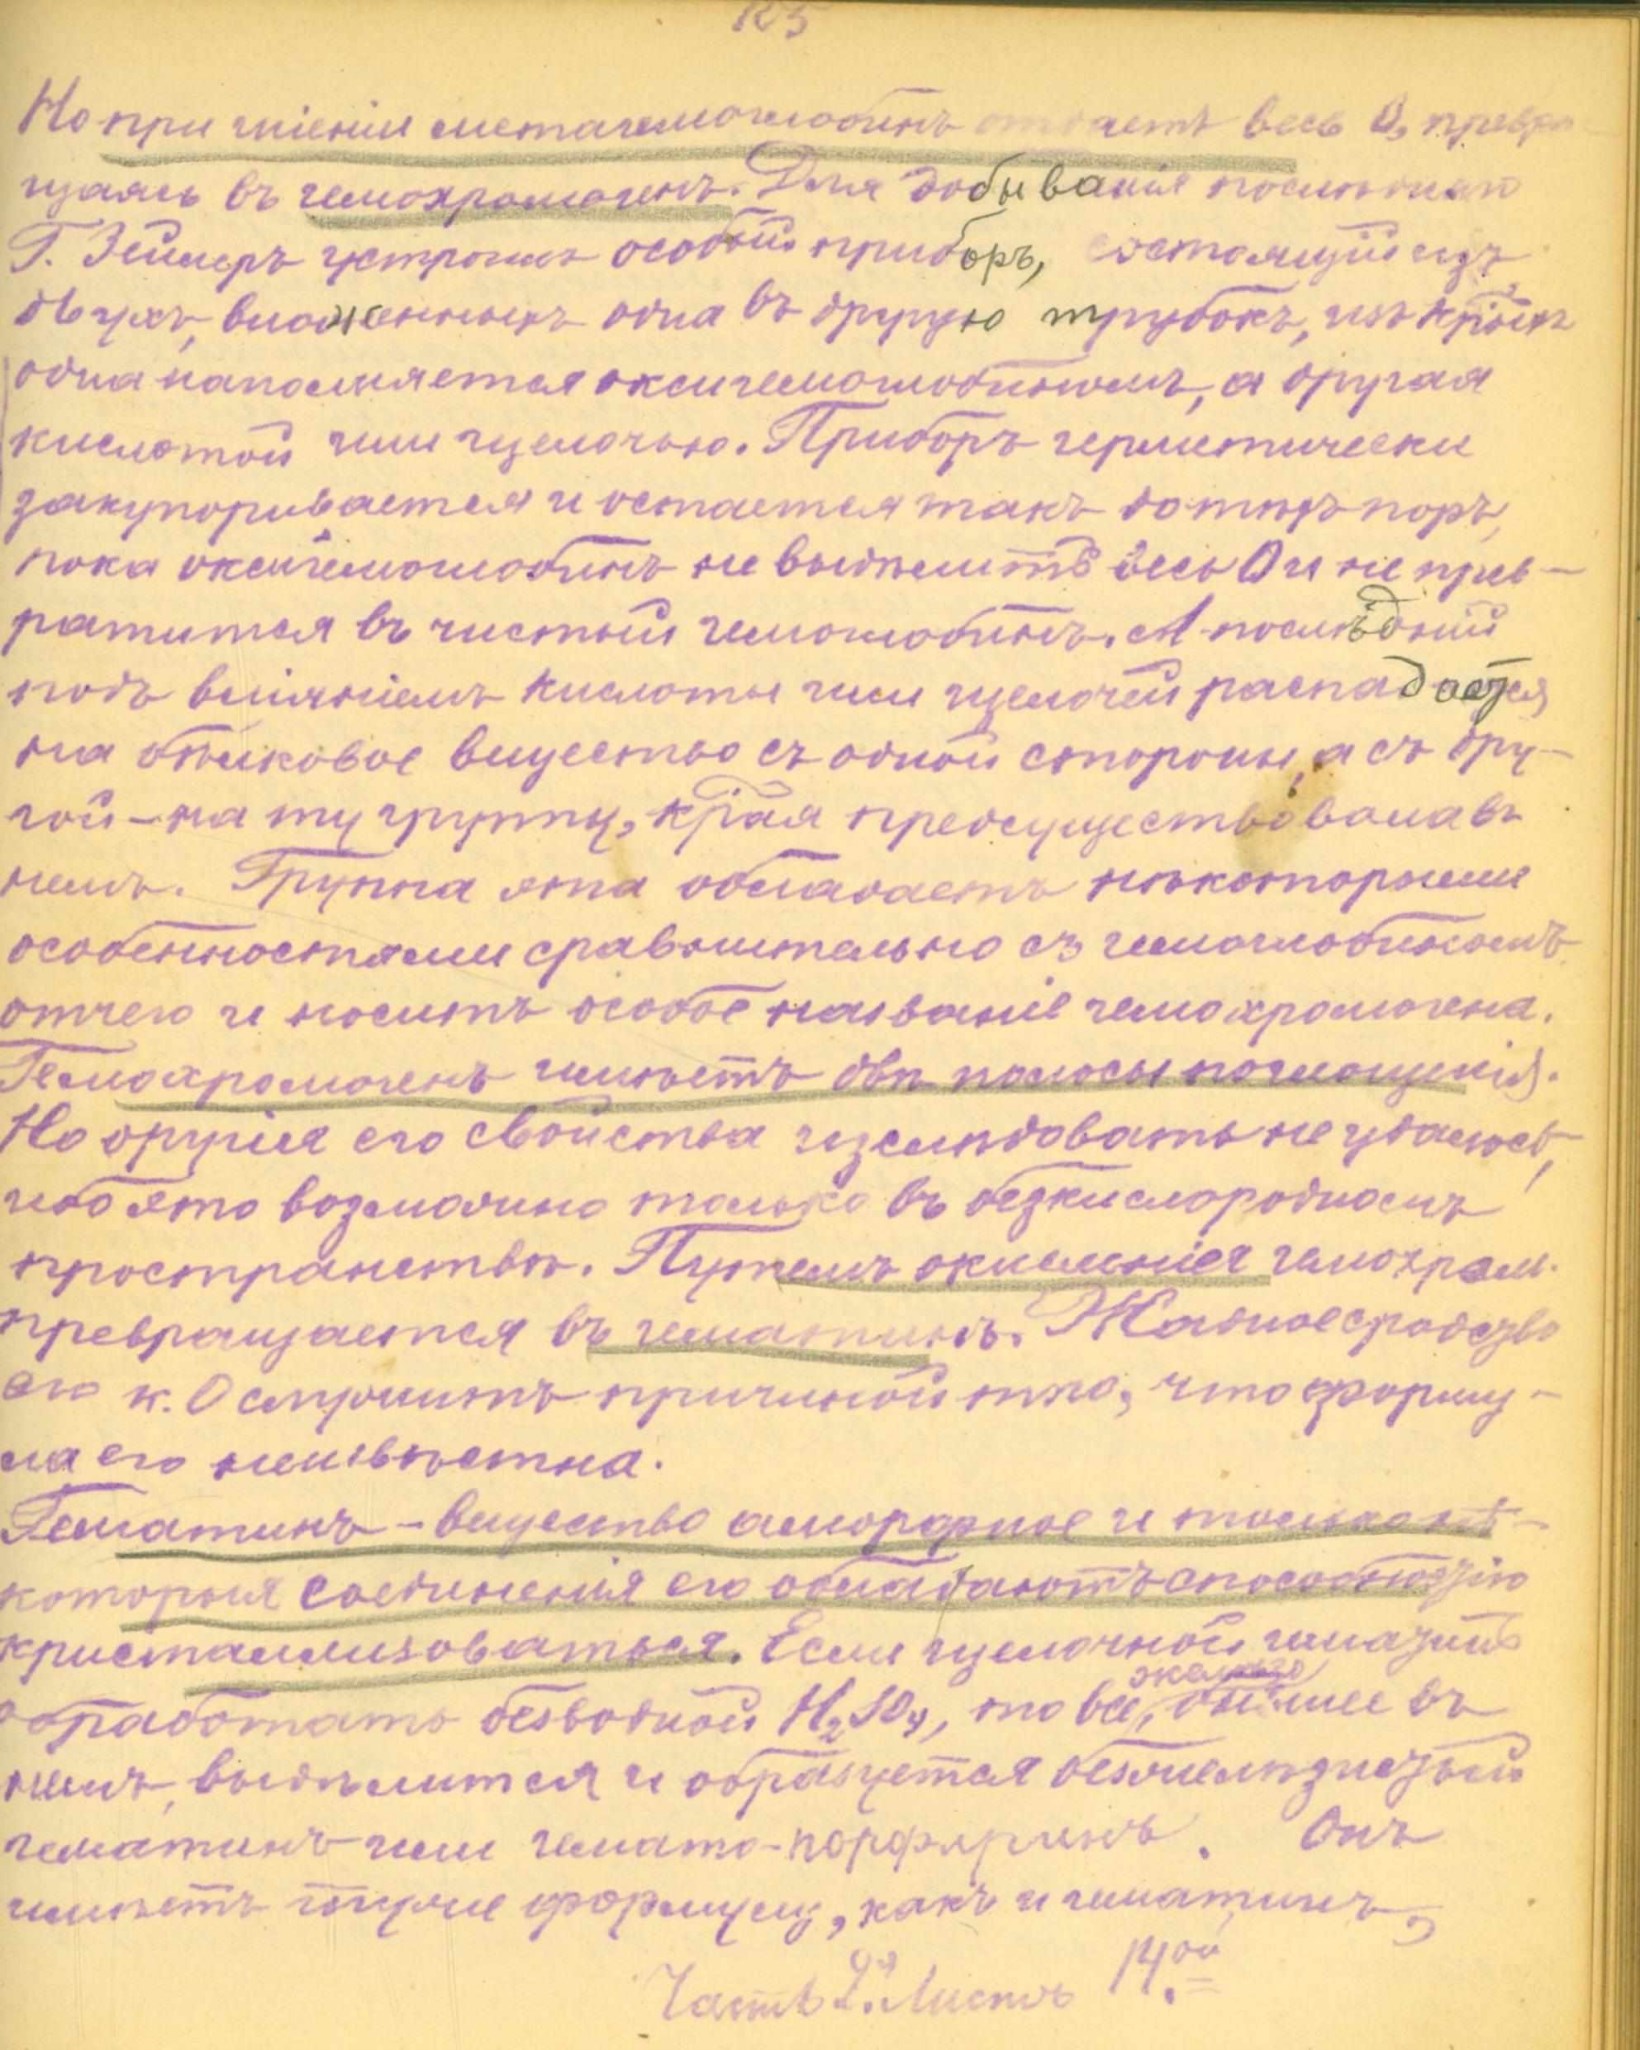 125
Но при гніеніи метагемоглобинъ отдаетъ весь O, превра-
щаясь въ гемохромогенъ. Для добыванія послѣдняго
Г. Зейлеръ устроилъ особый приборъ, состоящій изъ
двухъ, вложенныхъ одна въ другую трубокъ, изъ крыхъ
одна наполняется оксигемоглобиномъ, а другая
кислотой или щелочью. Приборъ герметически
закупоривается и остается такъ до тѣхъ поръ,
пока оксигемоглобинъ не выдѣлитъ весь O и не прев-
ратится въ чистый гемоглобинъ. А послѣдній
подъ вліяніемъ кислоты или щелочей распадается
на бѣлковое вещество съ одной стороны, а съ дру-
гой – на ту группу, края предсуществовала въ
немъ. Группа эта обладаетъ нѣкоторыми
особенностями сравнительно съ гемоглобиномъ
отчего и носитъ особое названіе гемохромогена.
Гемохромогенъ имѣетъ двѣ полосы поглощенія.
Но другія его свойства изслѣдовать не удалось,
ибо это возможно только въ безкислородномъ
пространствѣ. Путемъ окисленія гемохром.
превращается въ гематинъ. Жадное сродство
его к. O служитъ причиной того, что форму-
ла его неизвѣстна.
Гематинъ – вещество аморфное и только нѣ-
которыя соединенія его обладаютъ способностію
кристаллизоваться. Если щелочной гематинъ
обработать безводной H₂SO₄, то все желѣзо, бывшее въ
немъ, выдѣлится и образуется безжелѣзистый
гематинъ или гемато-порфиринъ. Онъ
имѣетъ ту же формулу, какъ и гематинъ,
Часть 2ая. Листъ 14.ый